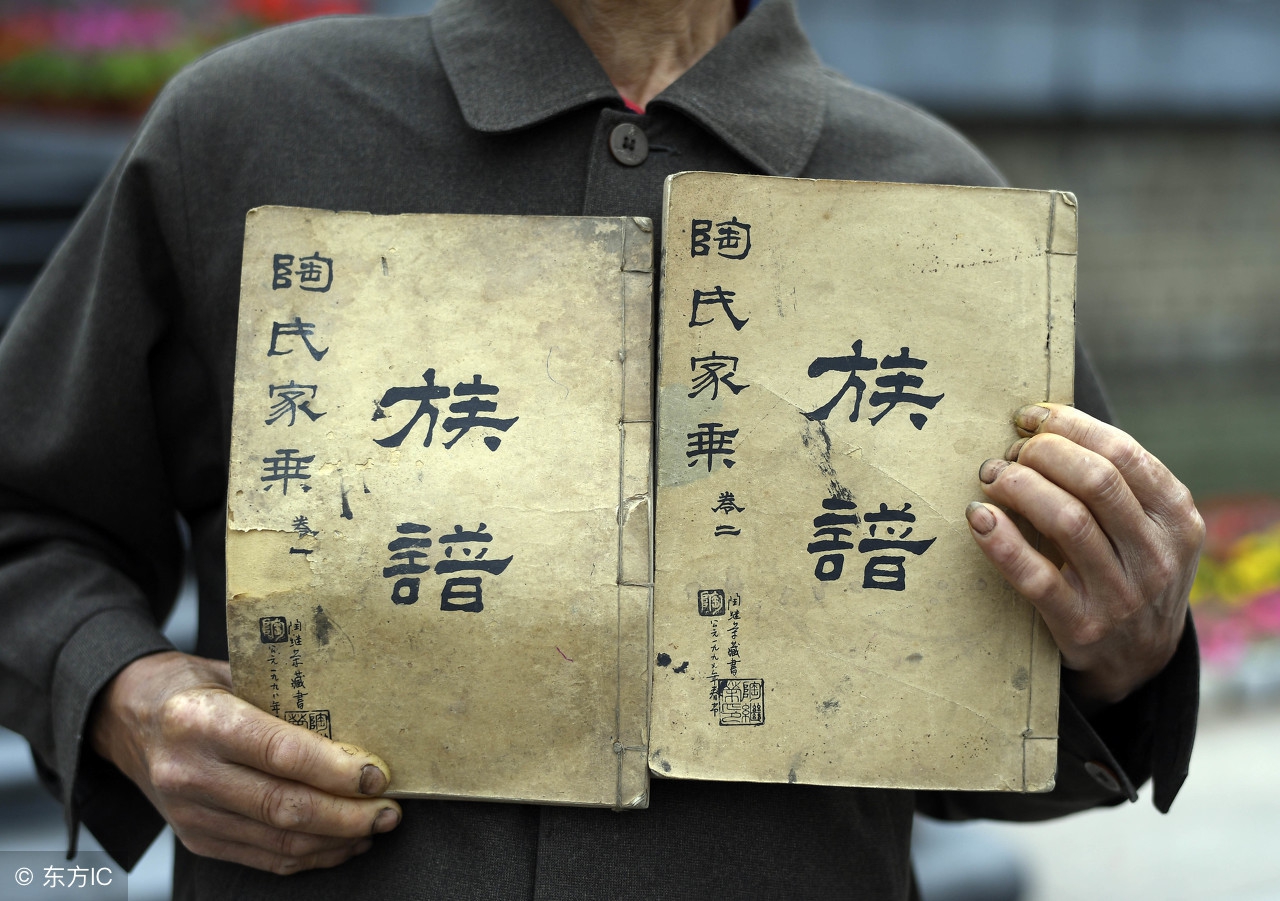 陶氏家乘 卷一
族譜
陶
陶继荣藏書
公元一九九八年
陶氏家乘 卷二
族譜
陶
陶继荣藏書
公元一九九八年春节
© 东方IC